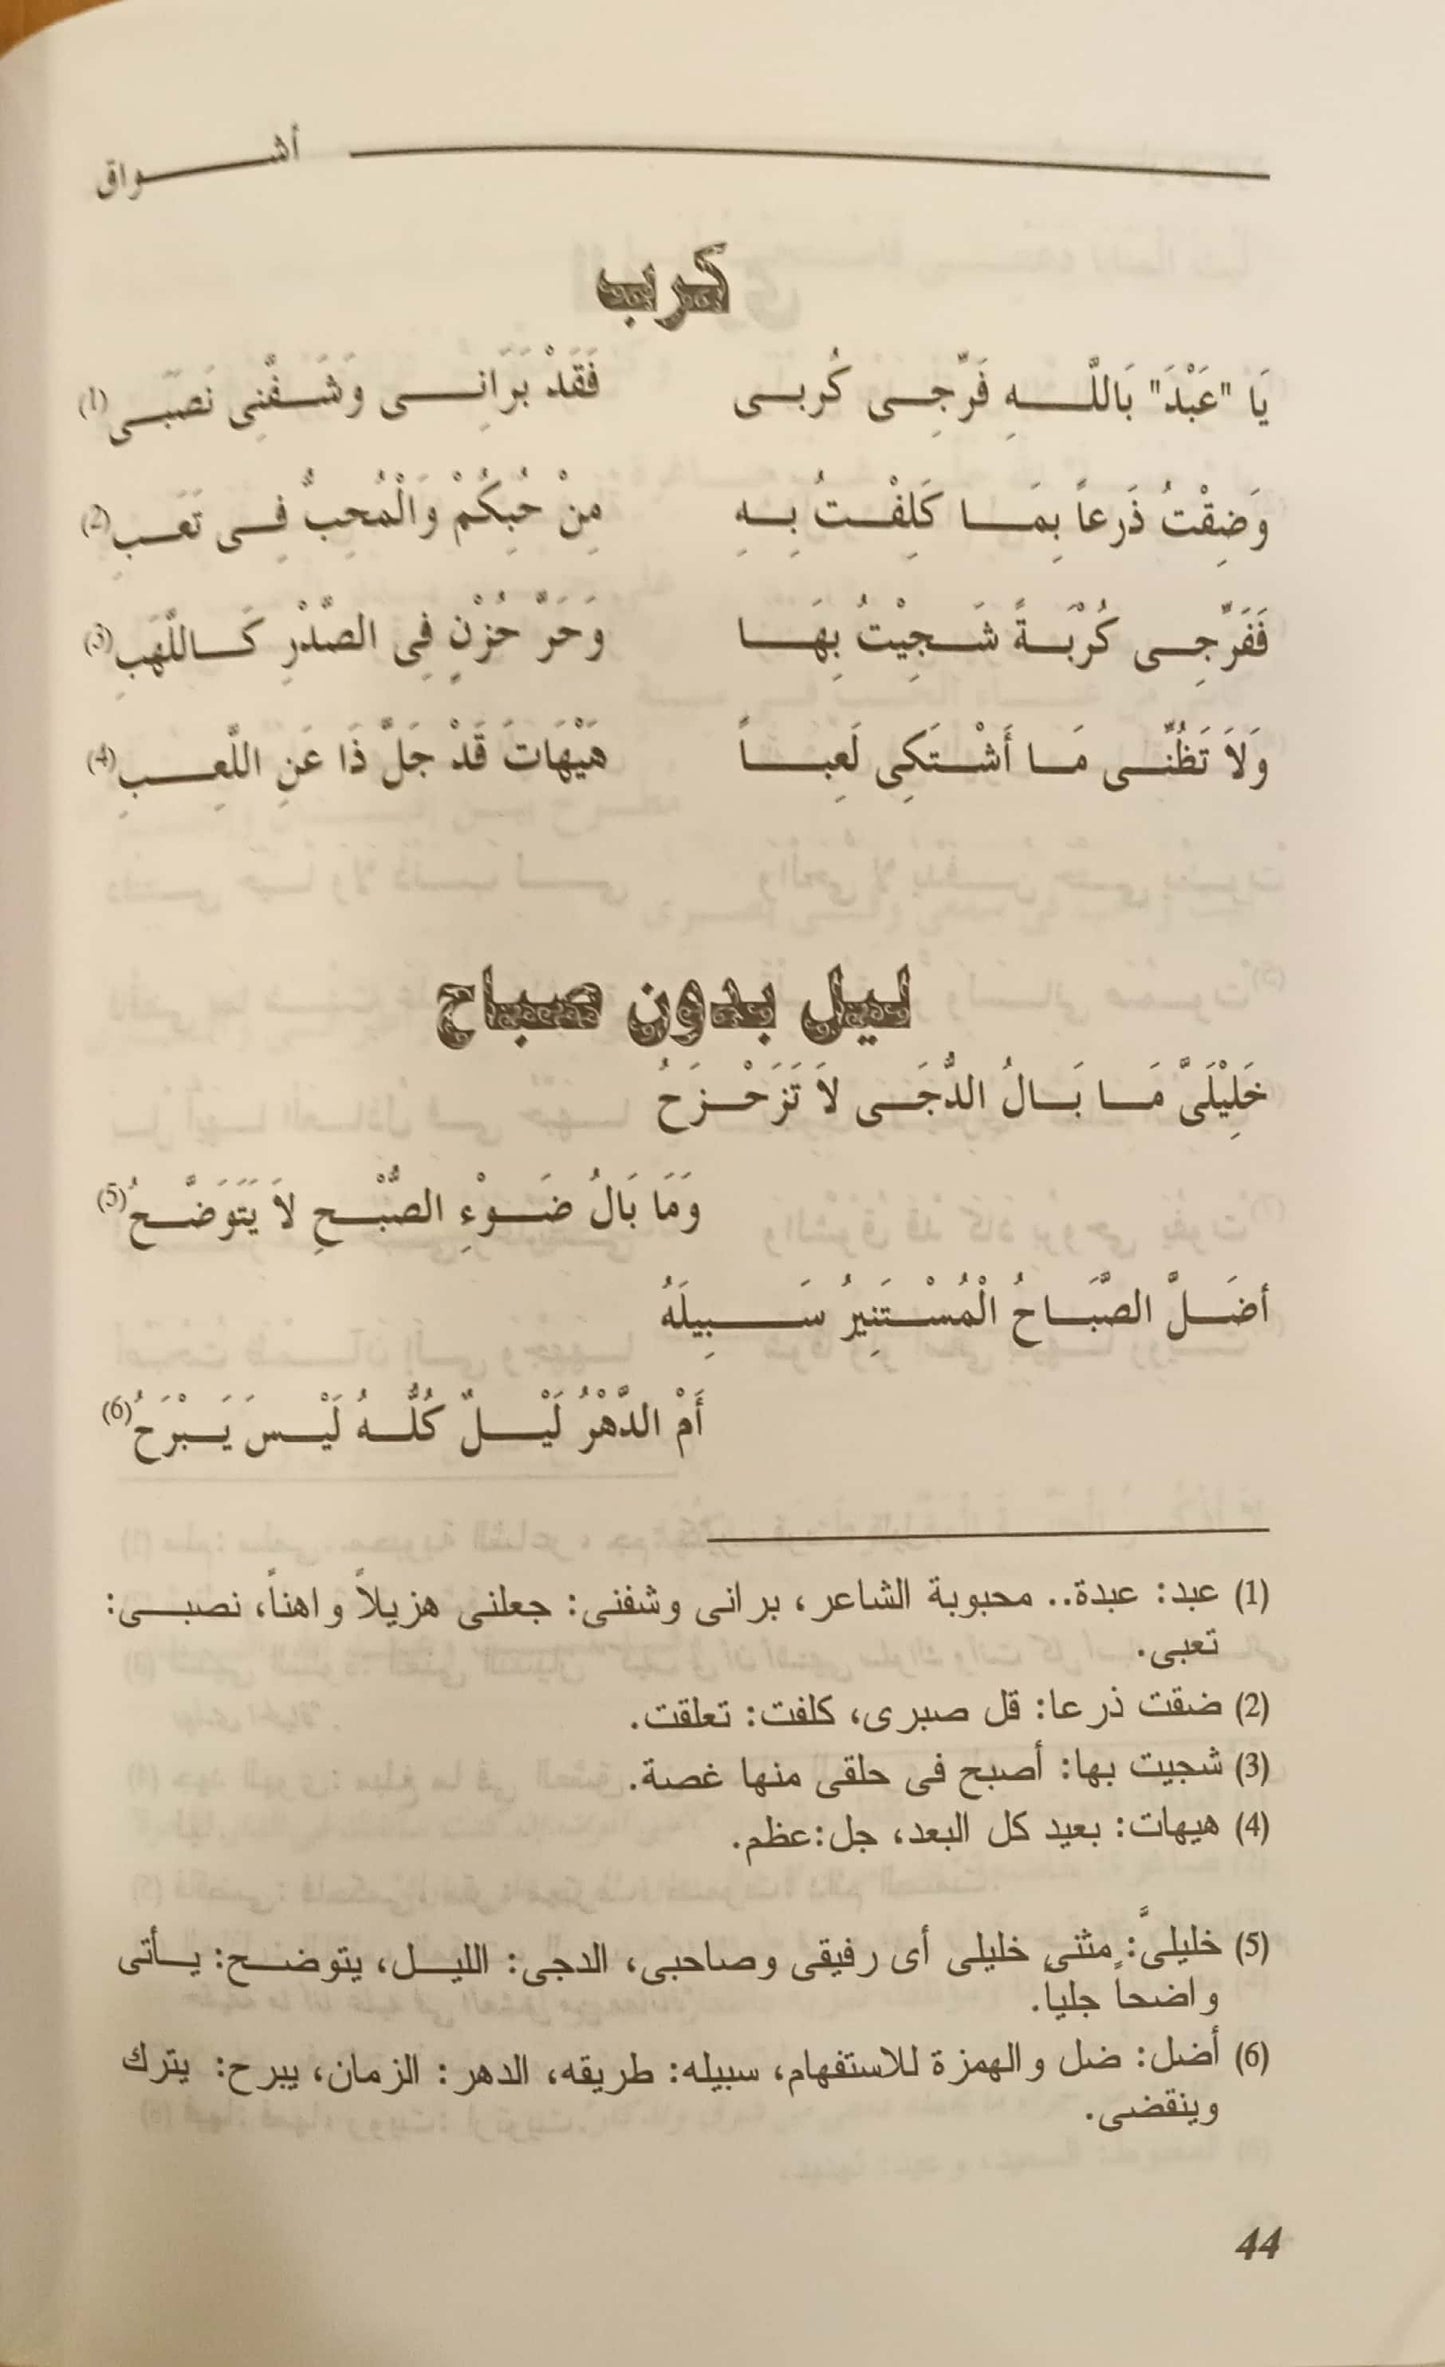 أشواق
كرب
يَا "عَبْدَ" بَاللَّهِ فَرِّجِى كُربى فَقَدْ بَرَانِى وَشَفَّنِى نَصَبّى (1)
وَضِقْتُ ذَرعاً بِمَا كَلِفْتُ بِهِ مِنْ حُبِكُمْ وَالْمُحِبُّ فِى تَعَبِ (2)
فَفَرِّجِى كُرْبَةً شَجِيْتُ بِهَا وَحَرَّ حُزْنٍ فِى الصَّدْرِ كَاللَّهَبِ (3)
وَلاَ تَظُنِّى مَا أَشْتَكِى لَعِباً هَيْهَاتَ قَدْ جَلَّ ذَا عَنِ اللَّعِبِ (4)
ليل بدون صباح
خَلِيْلَىَّ مَا بَالُ الدُّجَى لاَ تَزَحْزَحُ
وَمَا بَالُ ضَوْءِ الصُّبْحِ لاَ يَتَوَضَّحُ (5)
أضَلَّ الصَّبَاحُ الْمُسْتَنِيرُ سَبِيلَهُ
أَمْ الدَّهْرُ لَيْلٌ كُلُّهُ لَيْسَ يَبْرَحُ (6)
(1) عبد: عبدة.. محبوبة الشاعر، برانى وشفنى: جعلنى هزيلاً واهناً، نصبى:
تعبى.
(2) ضقت ذرعا: قل صبرى، كلفت: تعلقت.
(3) شجيت بها: أصبح فى حلقى منها غصة.
(4) هيهات: بعيد كل البعد، جل:عظم.
(5) خليلىَّ: مثنى خليلى أى رفيقى وصاحبى، الدجى: الليل، يتوضح: يأتى
واضحاً جلياً.
(6) أضل: ضل والهمزة للاستفهام، سبيله: طريقه، الدهر: الزمان، يبرح: يترك
وينقضى.
44